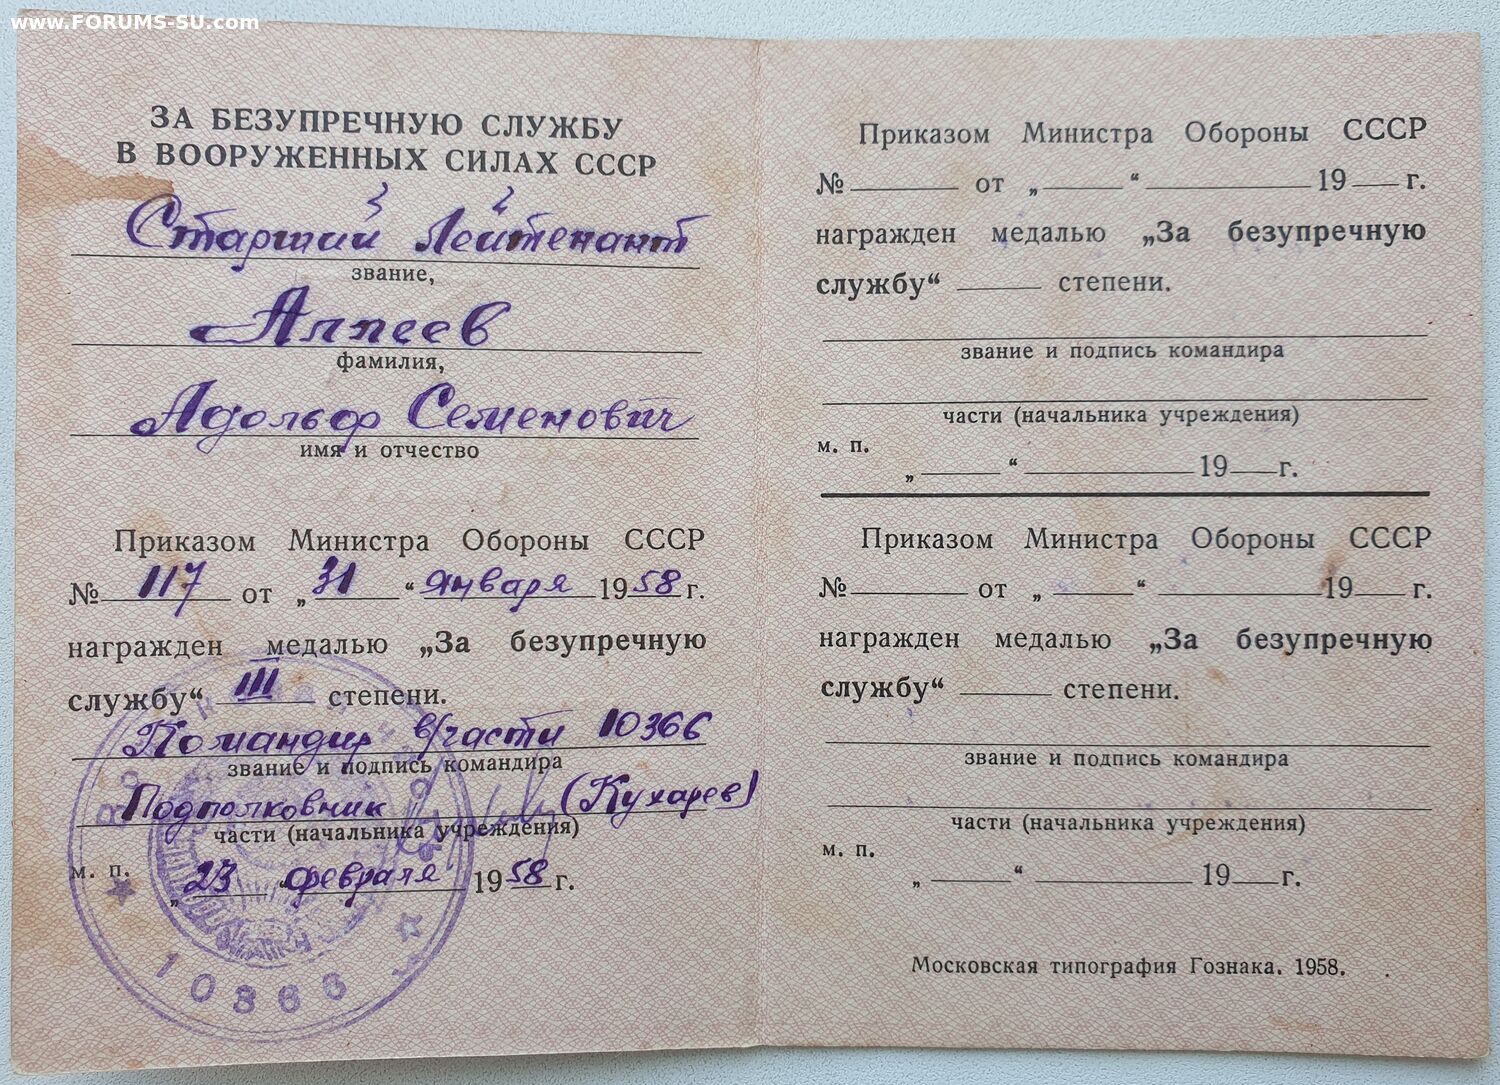 www.FORUMS-SU.com
ЗА БЕЗУПРЕЧНУЮ СЛУЖБУ
В ВООРУЖЕННЫХ СИЛАХ СССР
Старший Лейтенант
звание,
Алпеев
фамилия,
Адольф Семенович
имя и отчество
Приказом Министра Обороны СССР
№ 117 от „31“ января 1958 г.
награжден медалью „За безупречную
службу“ III степени.
Командир в/части 10366
звание и подпись командира
Подполковник (Кухарев)
части (начальника учреждения)
м. п.
„23“ февраля 1958 г.
10366
Приказом Министра Обороны СССР
№ ____ от „____“ ____ 19__ г.
награжден медалью „За безупречную
службу“ ____ степени.
звание и подпись командира
части (начальника учреждения)
м. п.
„____“ ____ 19__ г.
Приказом Министра Обороны СССР
№ ____ от „____“ ____ 19__ г.
награжден медалью „За безупречную
службу“ ____ степени.
звание и подпись командира
части (начальника учреждения)
м. п.
„____“ ____ 19__ г.
Московская типография Гознака. 1958.